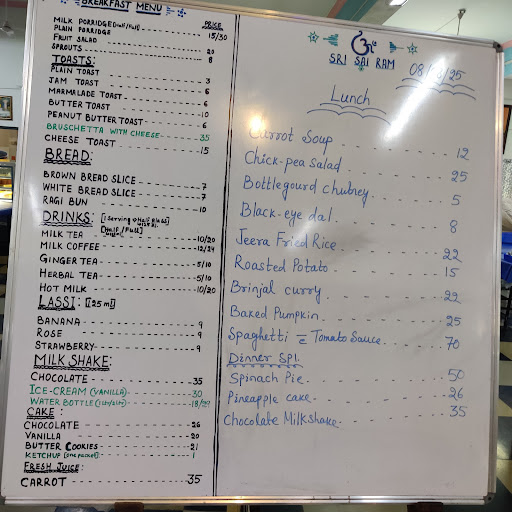 BREAKFAST MENU
PRICE
MILK PORRIDGE (Half/Full) 15/30
PLAIN PORRIDGE
FRUIT SALAD 20
SPROUTS 8
TOASTS:
PLAIN TOAST 3
JAM TOAST 6
MARMALADE TOAST 6
BUTTER TOAST 10
PEANUT BUTTER TOAST 6
BRUSCHETTA WITH CHEESE 35
CHEESE TOAST 15
BREAD:
BROWN BREAD SLICE 7
WHITE BREAD SLICE 7
RAGI BUN 10
DRINKS:
[Half/Full]
MILK TEA 10/20
MILK COFFEE 12/24
GINGER TEA 5/10
HERBAL TEA 5/10
HOT MILK 10/20
LASSI: [125 ml]
BANANA 9
ROSE 9
STRAWBERRY 9
MILK SHAKE:
CHOCOLATE 35
ICE-CREAM (VANILLA) 30
WATER BOTTLE (1 Ltr/2 Ltr) 18/27
CAKE:
CHOCOLATE 26
VANILLA 20
BUTTER COOKIES 21
KETCHUP [one packet] 1
FRESH JUICE:
CARROT 35
SRI SAI RAM
Lunch
Carrot Soup 12
Chick-pea Salad 25
Bottlegourd chutney 5
Black-eye dal 8
Jeera Fried Rice 22
Roasted Potato 15
Brinjal curry 22
Baked Pumpkin 25
Spaghetti c̄ Tomato Sauce 70
Dinner Spl.
Spinach Pie 50
Pineapple cake 26
Chocolate Milkshake 35